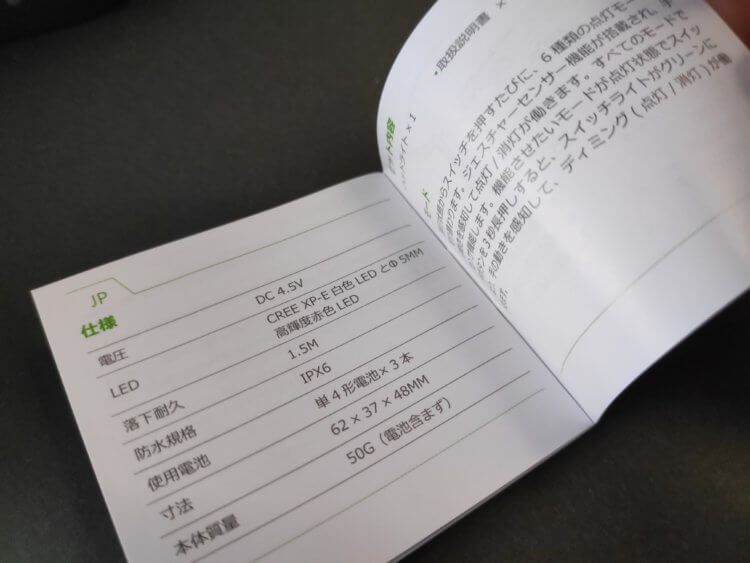 JP
仕様
電圧 DC 4.5V
LED CREE XP-E 白色 LED とΦ 5MM
高輝度赤色 LED
落下耐久 1.5M
防水規格 IPX6
使用電池 単4形電池×3本
寸法 62 × 37 × 48MM
本体質量 50G（電池含まず）
・取扱説明書 ×
ライト× 1
ト内容
モード
状態からスイッチを押すたびに、6 種類の点灯モー
変わります。ジェスチャーセンサー機能が搭載され、手
を感知して点灯 / 消灯が働きます。すべてのモードで
機能します。機能させたいモードが点灯状態でスイッ
を3秒長押しすると、スイッチライトがグリーンに
手の動きを感知して、ディミング ( 点灯 / 消灯 ) が働
ます。